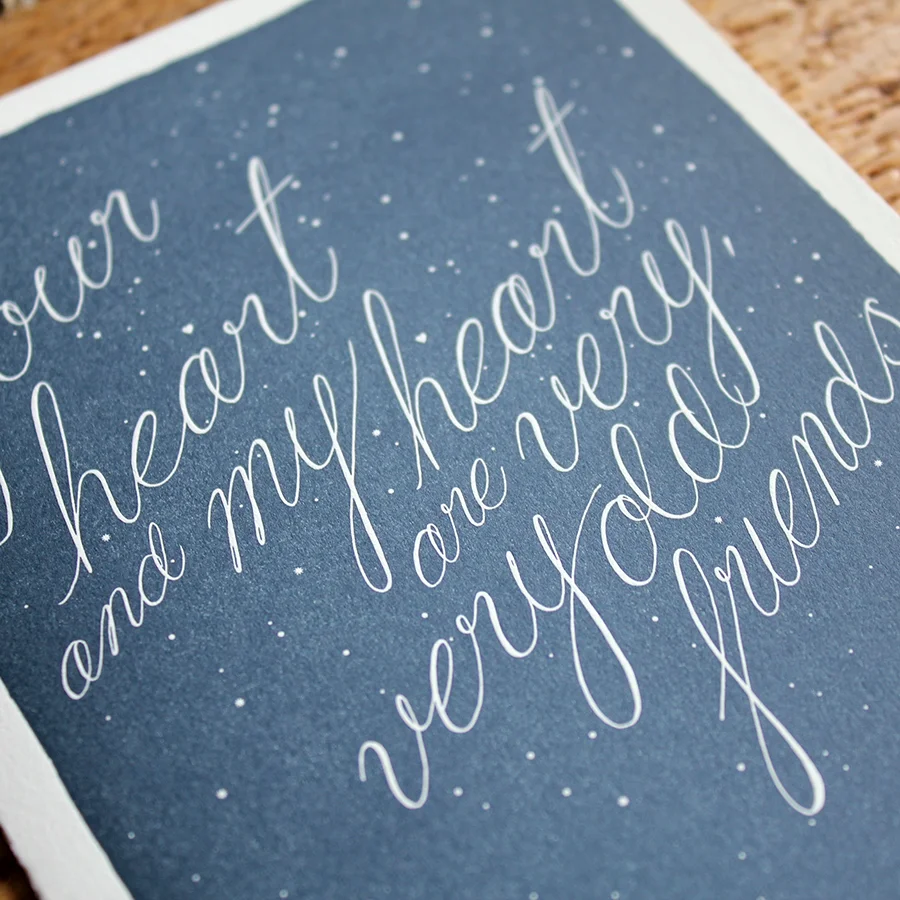 your
heart
and my heart
are very,
very old
friends